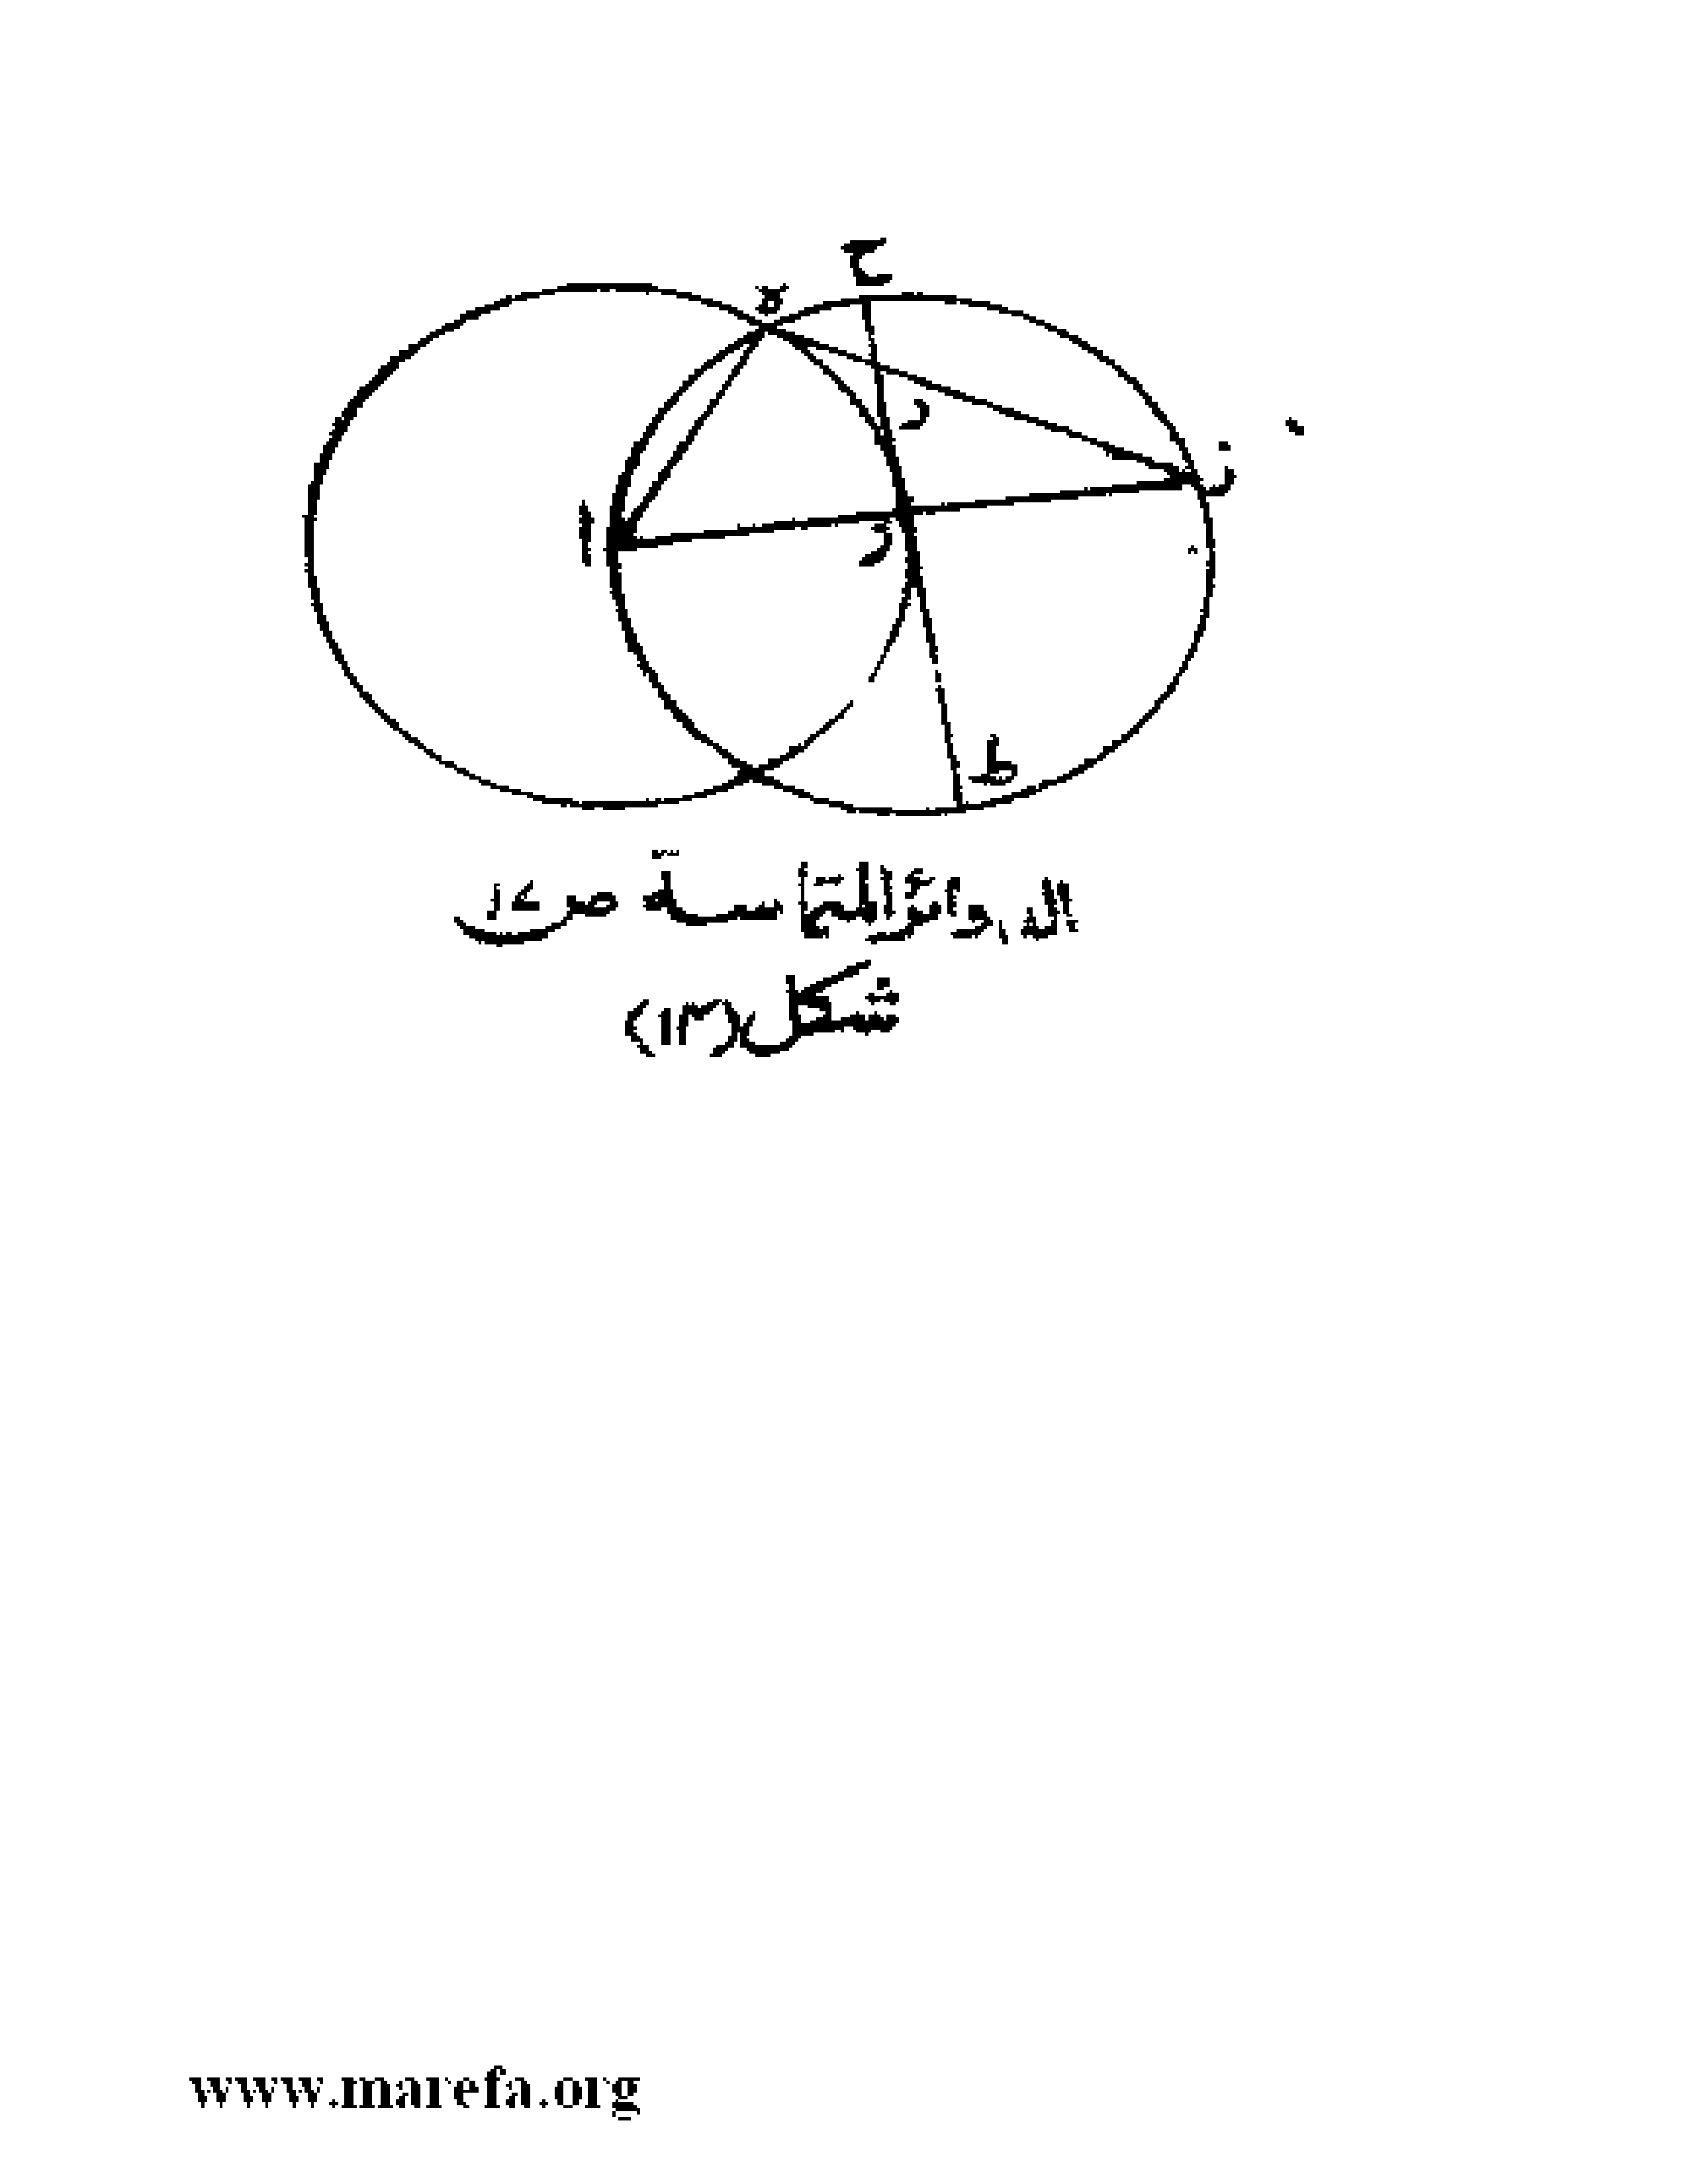 ح
ه
د
ز
ا
ط
الدوائر المتماسة ص
شكل (١٣)
www.marefa.org